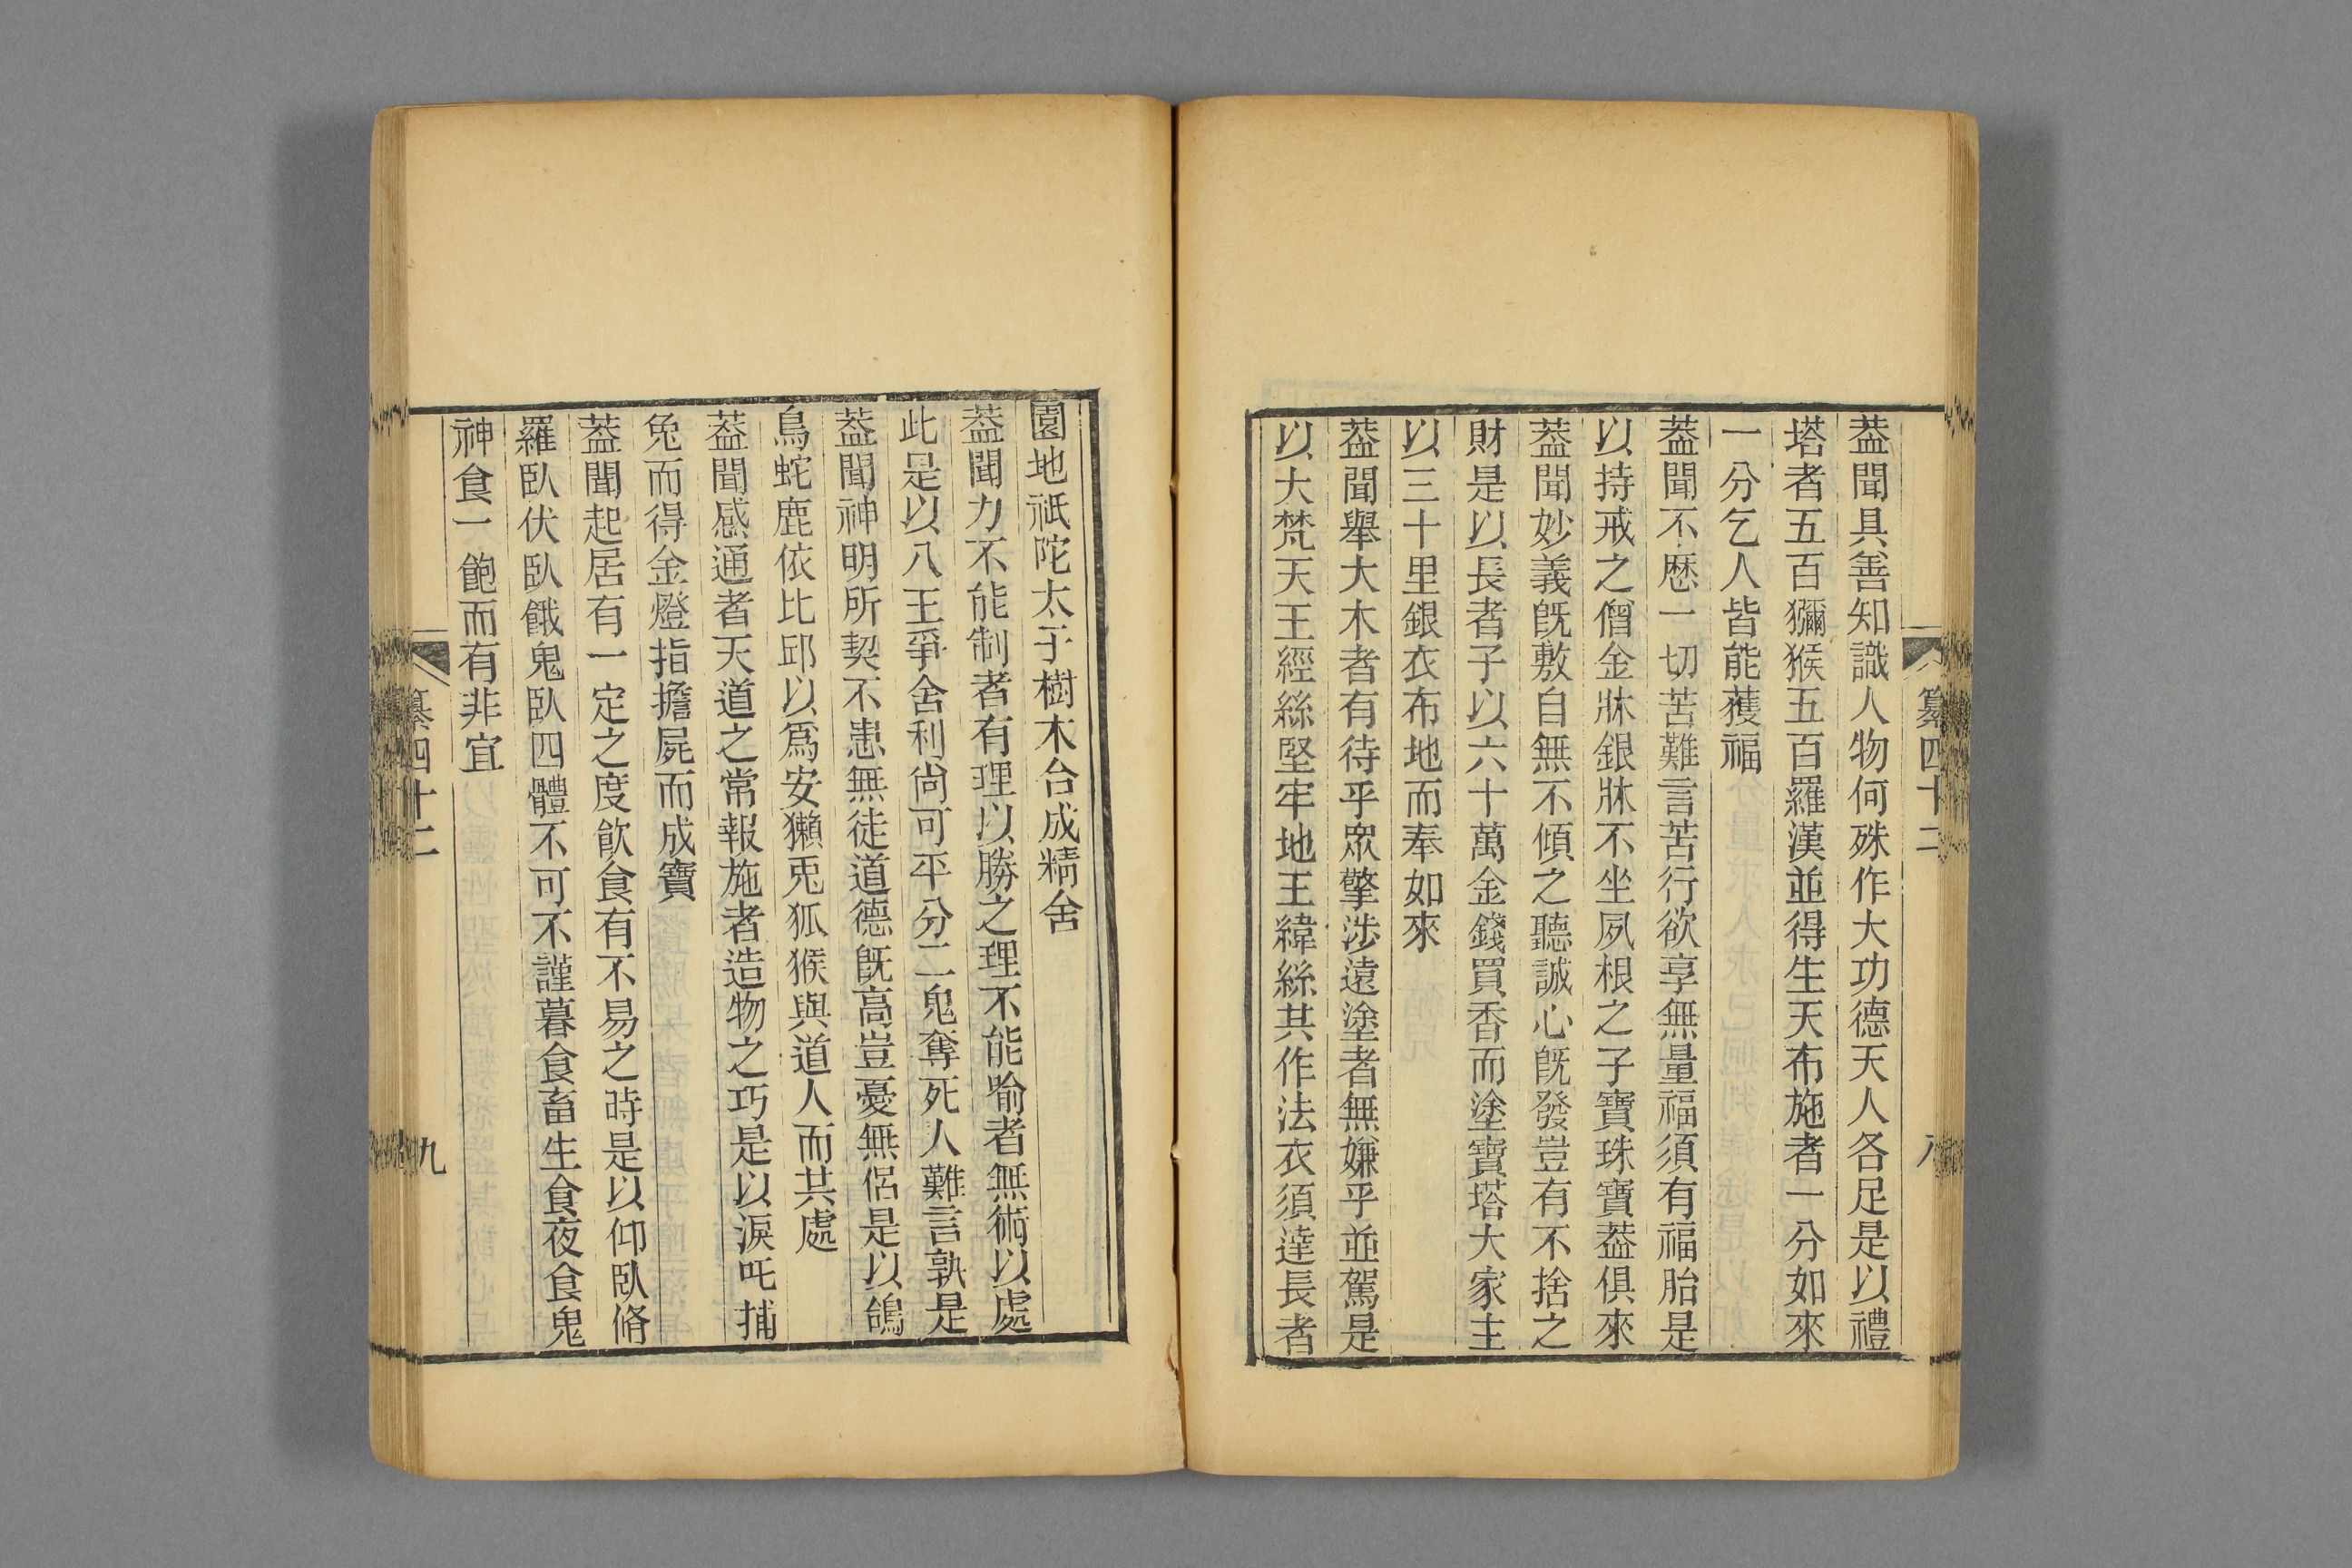 纂四十二
八
葢聞具善知識人物何殊作大功德天人各足是以禮
塔者五百獼猴五百羅漢並得生天布施者一分如來
一分乞人皆能獲福
葢聞不懕一切苦難言苦行欲享無量福須有福胎是
以持戒之僧金牀銀牀不坐夙根之子寶珠寶葢俱來
葢聞妙義旣敷自無不傾之聽誠心旣發豈有不捨之
財是以長者子以六十萬金錢買香而塗寶塔大家主
以三十里銀衣布地而奉如來
葢聞舉大木者有待乎眾擎涉遠塗者無嫌乎並駕是
以大梵天王經絲堅牢地王緯絲共作法衣須達長者
園地祇陀太子樹木合成精舍
葢聞力不能制者有理以勝之理不能喻者無術以處
此是以八王爭舍利尙可平分二鬼奪死人難言孰是
葢聞神明所契不患無徒道德旣高豈憂無侶是以鴿
鳥蛇鹿依比邱以爲安獺兎狐猴與道人而共處
葢聞感通者天道之常報施者造物之巧是以淚吒捕
兔而得金燈指擔屍而成寶
葢聞起居有一定之度飮食有不易之時是以仰臥脩
羅臥伏臥餓鬼臥四體不可不謹暮食畜生食夜食鬼
神食一飽而有非宜
纂四十二
九